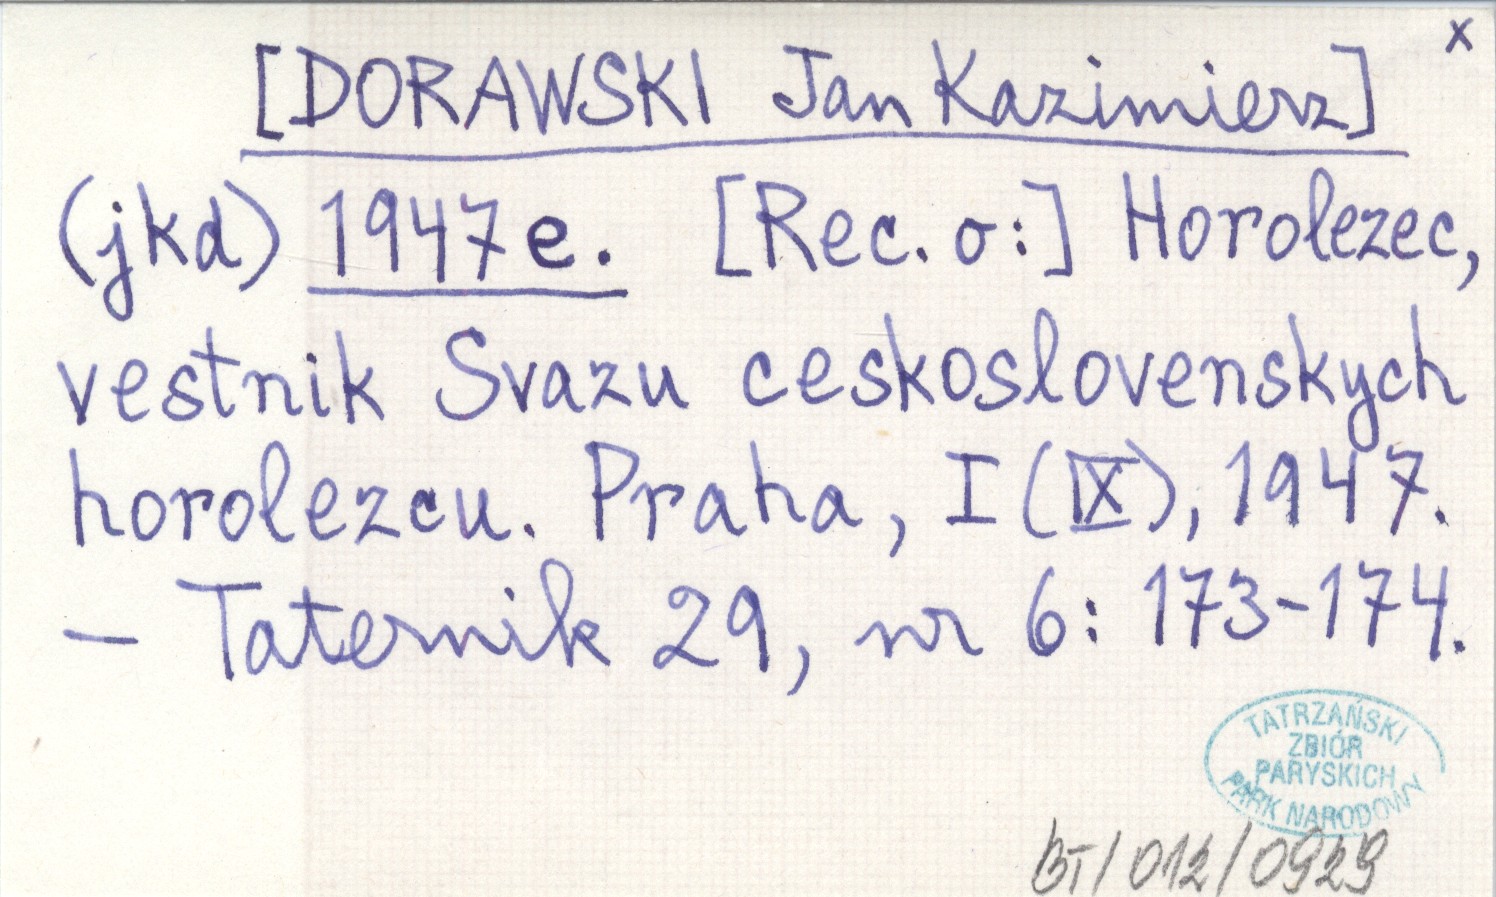 x
[DORAWSKI Jan Kazimierz]
(jkd) 1947e. [Rec. o:] Horolezec,
vestnik Svazu ceskoslovenskych
horolezcu. Praha, I (IX), 1947.
— Taternik 29, nr 6: 173-174.
TATRZAŃSKI
ZBIÓR
PARYSKICH
PARK NARODOWY
BT/012/0929